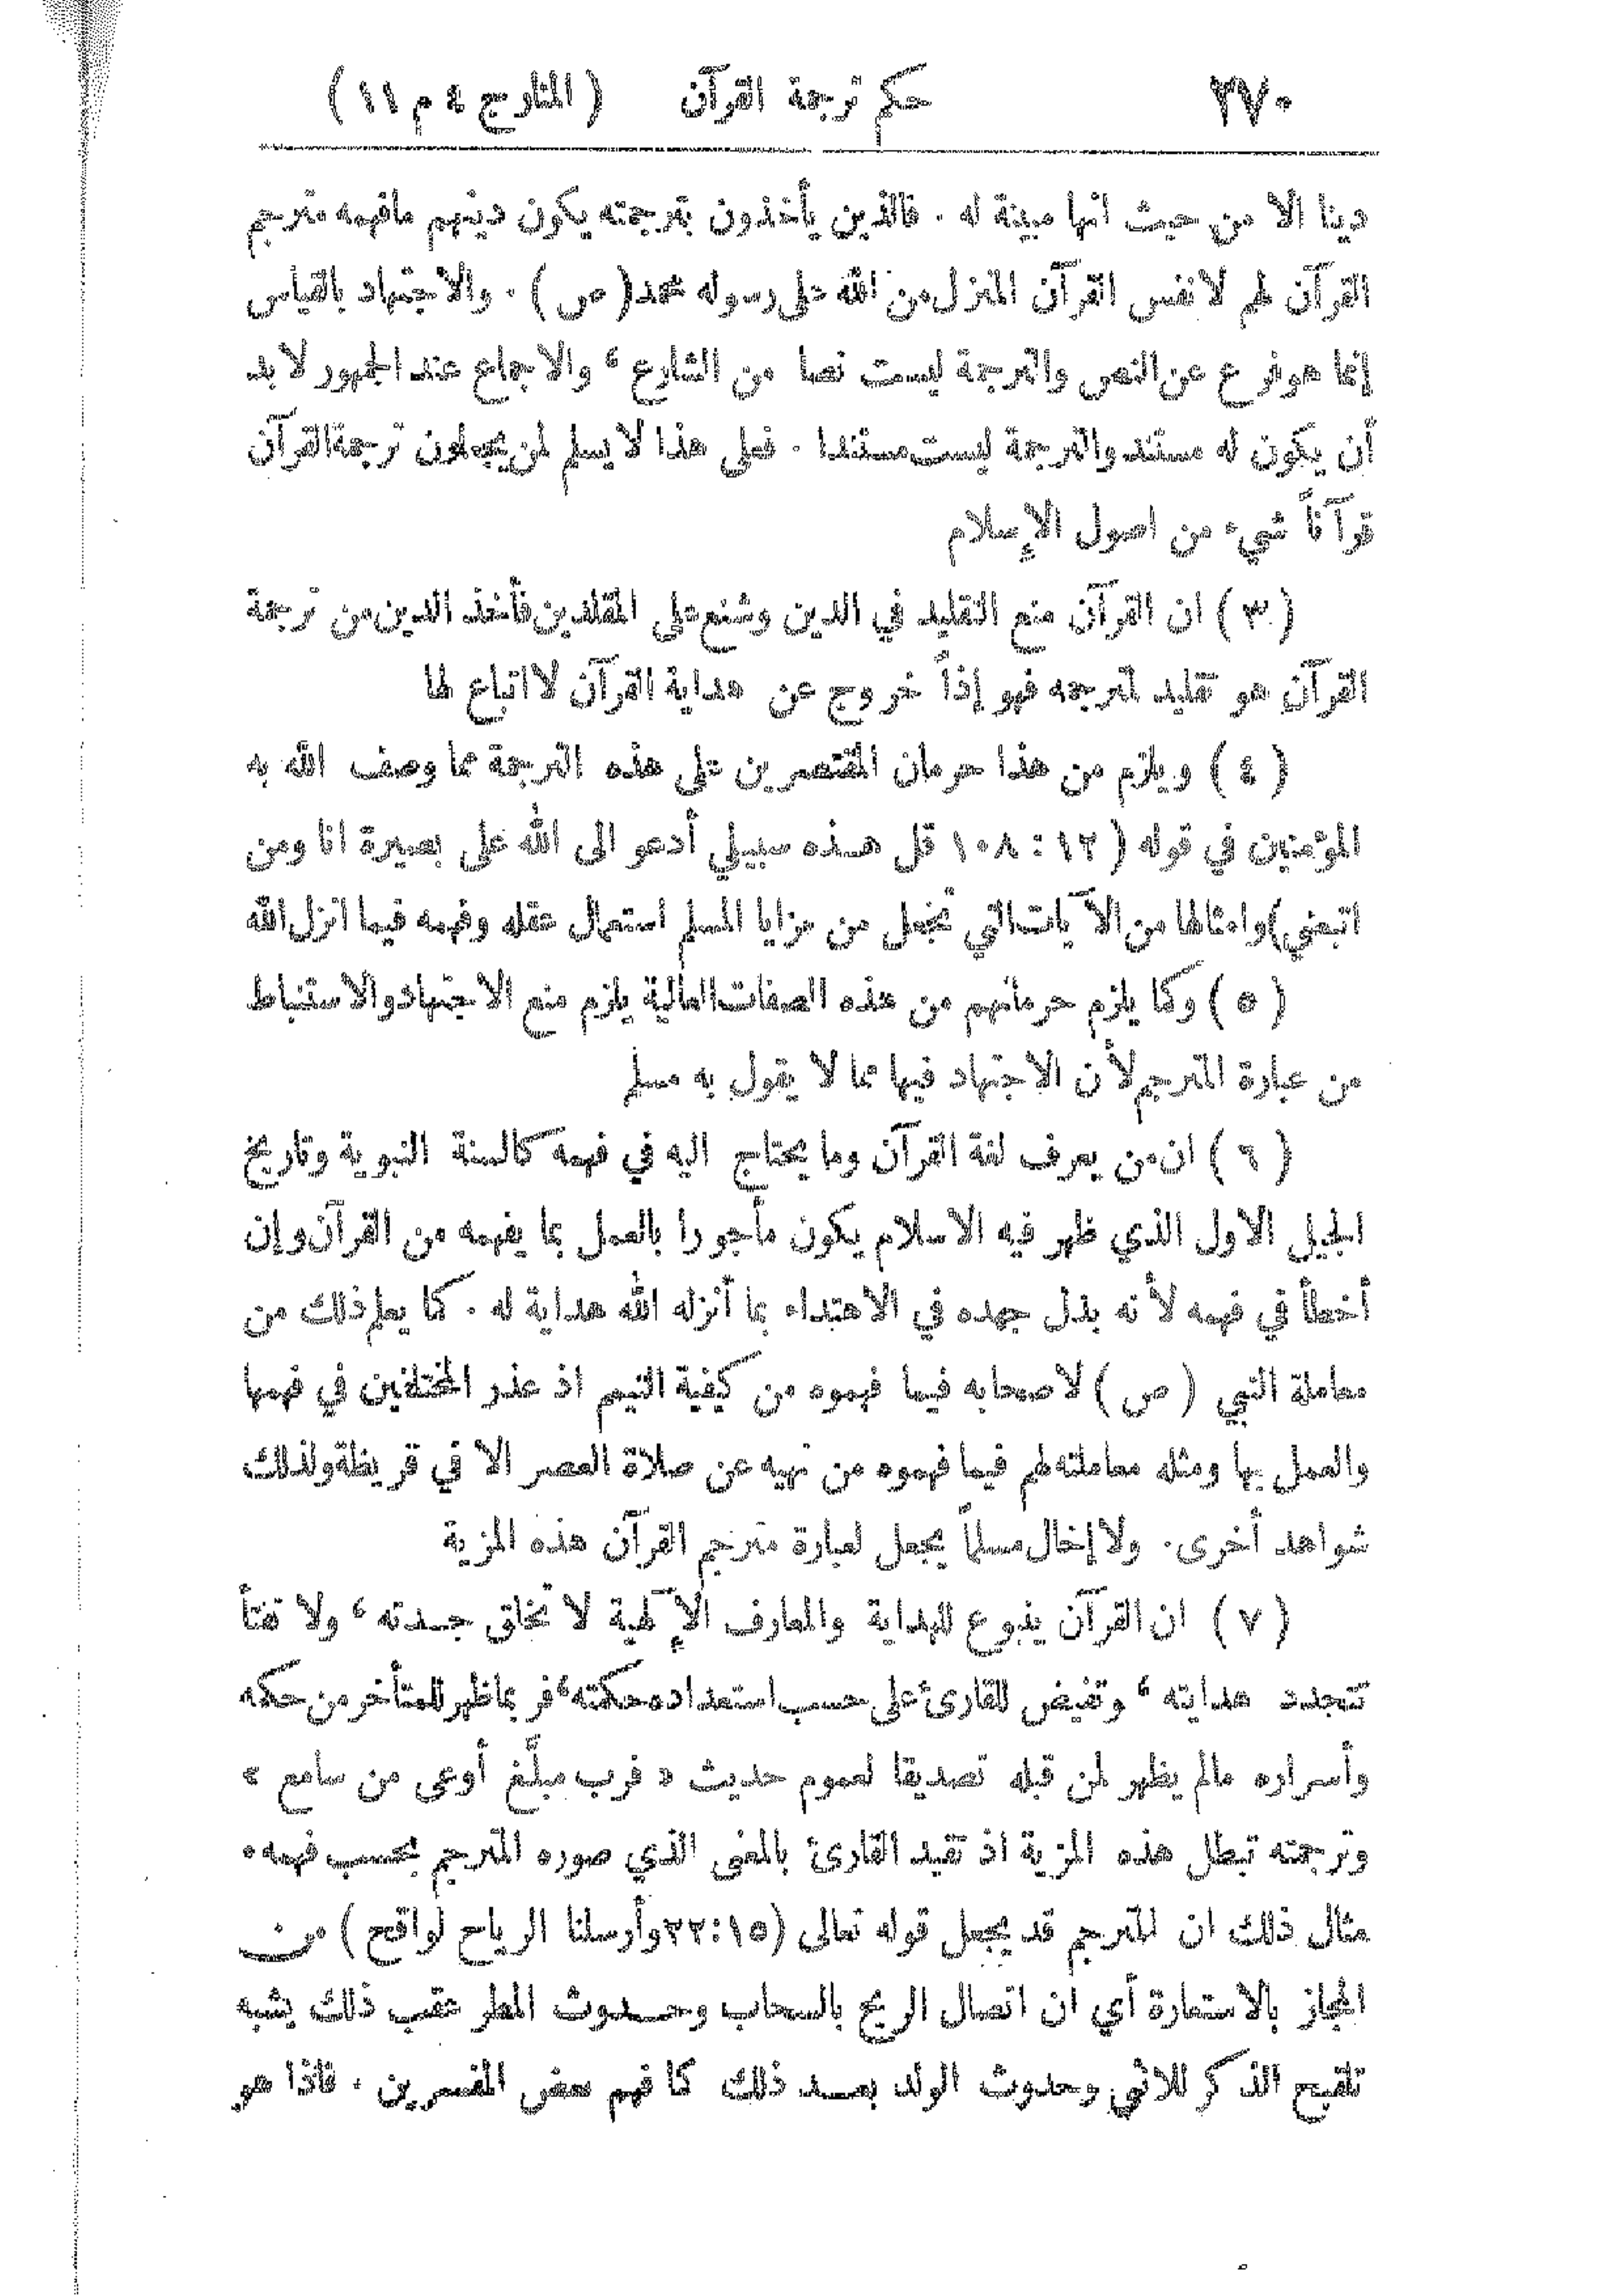 ٢٧٠ حكم ترجمة القرآن (المنار ج ٤ م ١١)
دينا الا من حيث انها مبينة له . فالذين يأخذون بترجمته يكون دينهم ما فهمه مترجم
القرآن لهم لا نفس القرآن المنزل من الله على رسوله محمد (ص) . والاجتهاد بالقياس
إنما هو فرع عن النص والترجمة ليست نصا من الشارع ، والاجماع عند الجمهور لا بد
أن يكون له مستند والترجمة ليست مستندا . فعلى هذا لا يسلم لمن يجعلون ترجمة القرآن
قرآناً شيء من اصول الإسلام
(٣) ان القرآن منع التقليد في الدين وشنع على المقلدين فأخذ الدين من ترجمة
القرآن هو تقليد لمترجمه فهو إذاً خروج عن هداية القرآن لا اتباع لها
(٤) ويلزم من هذا حرمان المقتصرين على هذه الترجمة مما وصف الله به
المؤمنين في قوله (١٢ : ١٠٨ قل هذه سبيلي أدعو الى الله على بصيرة انا ومن
اتبعني) وامثالها من الآيات التي تجعل من مزايا المسلم استعمال عقله وفهمه فيما انزل الله
(٥) وكما يلزم حرمانهم من هذه الصفات العالية يلزم منع الاجتهاد والاستنباط
من عبارة المترجم لأن الاجتهاد فيها مما لا يقول به مسلم
(٦) ان من يعرف لغة القرآن وما يحتاج اليه في فهمه كالسنة النبوية وتاريخ
الجيل الاول الذي ظهر فيه الاسلام يكون مأجورا بالعمل بما يفهمه من القرآن وإن
أخطأ في فهمه لأنه بذل جهده في الاهتداء بما أنزله الله هداية له . كما يعلم ذلك من
معاملة النبي (ص) لأصحابه فيما فهموه من كيفية التيمم اذ عذر المختلفين في فهمها
والعمل بها ومثله معاملته لهم فيما فهموه من نهيه عن صلاة العصر الا في قريظة ولذلك
شواهد أخرى . ولا إخال مسلماً يجعل لعبارة مترجم القرآن هذه المزية
(٧) ان القرآن ينبوع للهداية والمعارف الإلهية لا تخلق جدته ، ولا تفتأ
تتجدد هدايته ، وتفيض للقارئ على حسب استعداده حكمته ، فربما ظهر للمتأخر من حكمه
وأسراره ما لم يظهر لمن قبله تصديقا لعموم حديث « فرب مبلَّغ أوعى من سامع »
وترجمته تبطل هذه المزية اذ تقيد القارئ بالمعنى الذي صوره المترجم بحسب فهمه .
مثال ذلك ان المترجم قد يجعل قوله تعالى (١٥ : ٢٢ وأرسلنا الرياح لواقح) من
المجاز بالاستعارة أي ان اتصال الريح بالسحاب وحدوث المطر عقب ذلك يشبه
تلقيح الذكر للانثى وحدوث الولد بعد ذلك كما فهم بعض المفسرين . فاذا هو